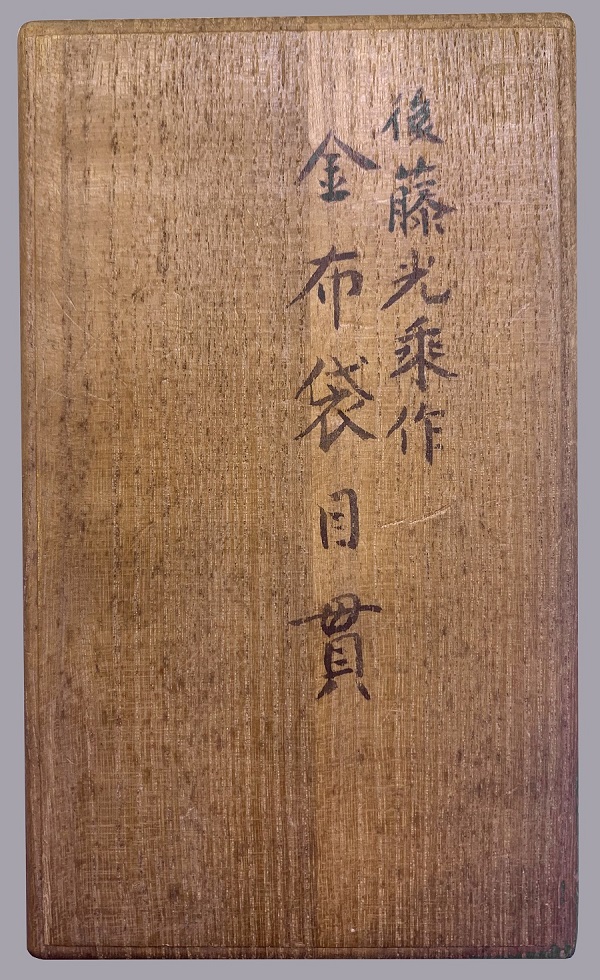 後藤光乗作
金布袋目貫